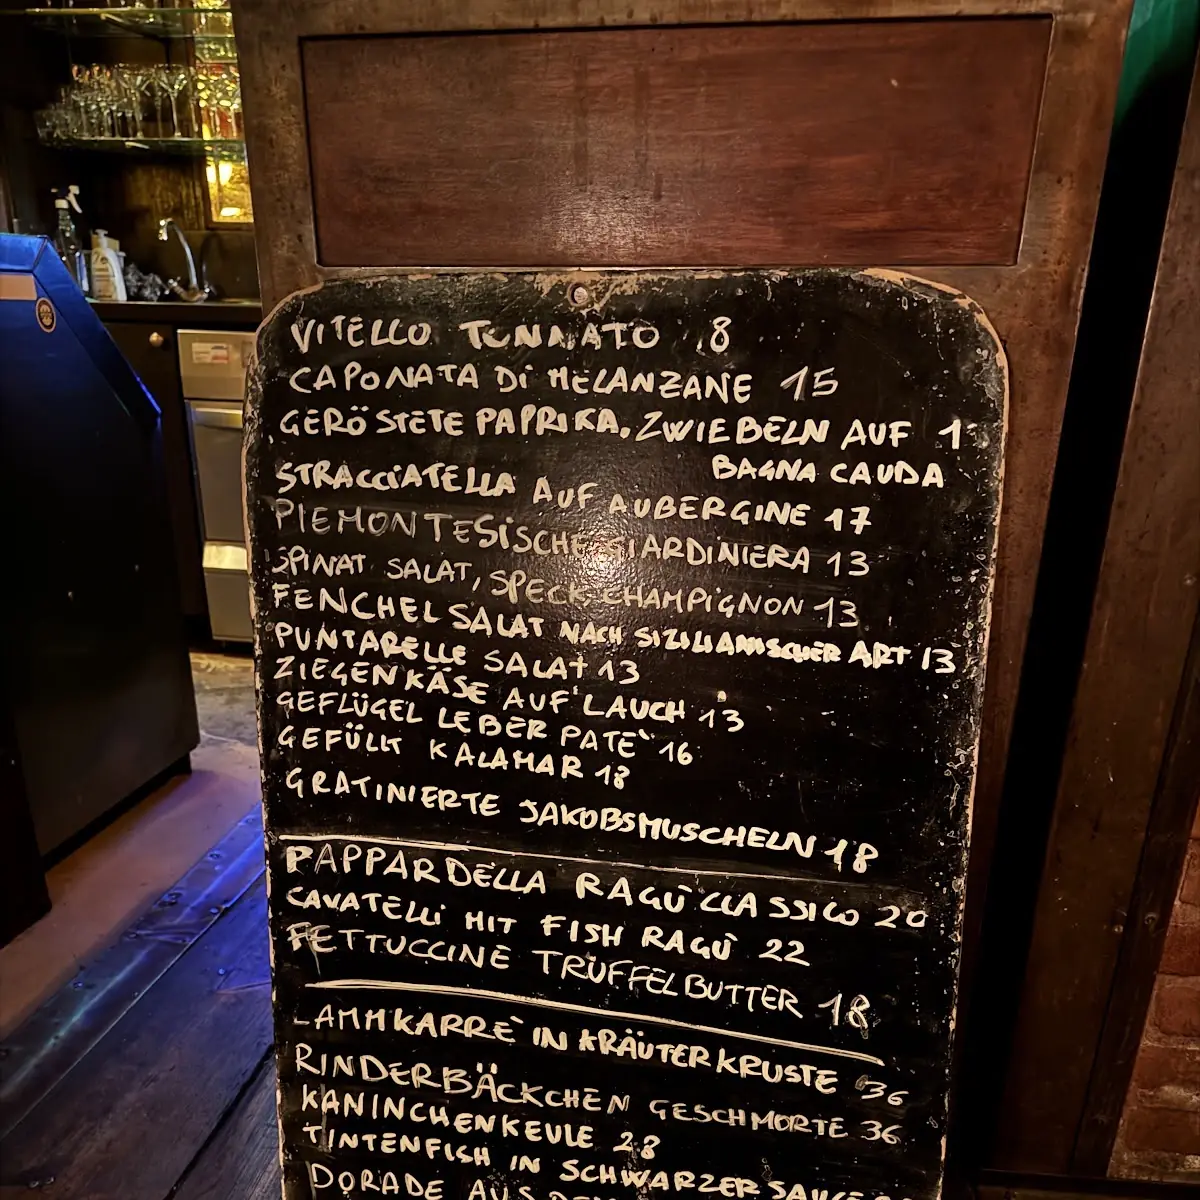 VITELLO TONNATO 8
CAPONATA Di MELANZANE 15
GERÖSTETE PAPRIKA, ZWIEBELN AUF
BAGNA CAUDA
STRACCiATELLA AUF AUBERGINE 17
PIEMONTESiSCHE GIARDINIERA 13
SPINAT SALAT, SPECK, CHAMPiGNON 13
FENCHEL SALAT NACH SIZILIANISCHER ART 13
PUNTARELLE SALAT 13
ZIEGENKÄSE AUF LAUCH 13
GEFLÜGEL LEBER PATE` 16
GEFÜLLT KALAMAR 18
GRATINIERTE JAKOBSMUSCHELN 18
PAPPARDELLA RAGÙ CLASSICO 20
CAVATELLi MIT FISH RAGÙ 22
FETTUCCINE TRÜFFELBUTTER 18
LAMMKARRÈ IN KRÄUTERKRUSTE 36
RINDERBÄCKCHEN GESCHMORTE 36
KANINCHENKEULE 28
TINTENFISH IN SCHWARZER SAUCE
DORADE AUS DEM